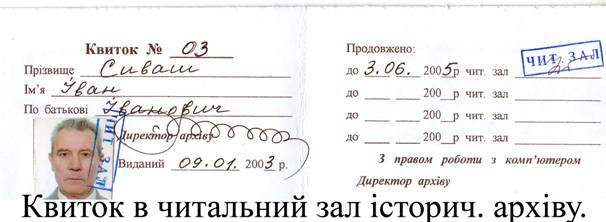 Квиток № 03
Прізвище Сиваш
Ім'я Іван
По батькові Іванович
ЧИТ ЗАЛ
Директор архіву
Виданий 09.01. 2003 р.
Продовжено:
ЧИТ ЗАЛ
до 3.06. 2005р чит. зал
до ___ ___ 200__р чит. зал
до ___ ___ 200__р чит. зал
до ___ ___ 200__р чит. зал
З правом роботи з комп'ютером
Директор архіву
Квиток в читальний зал історич. архіву.